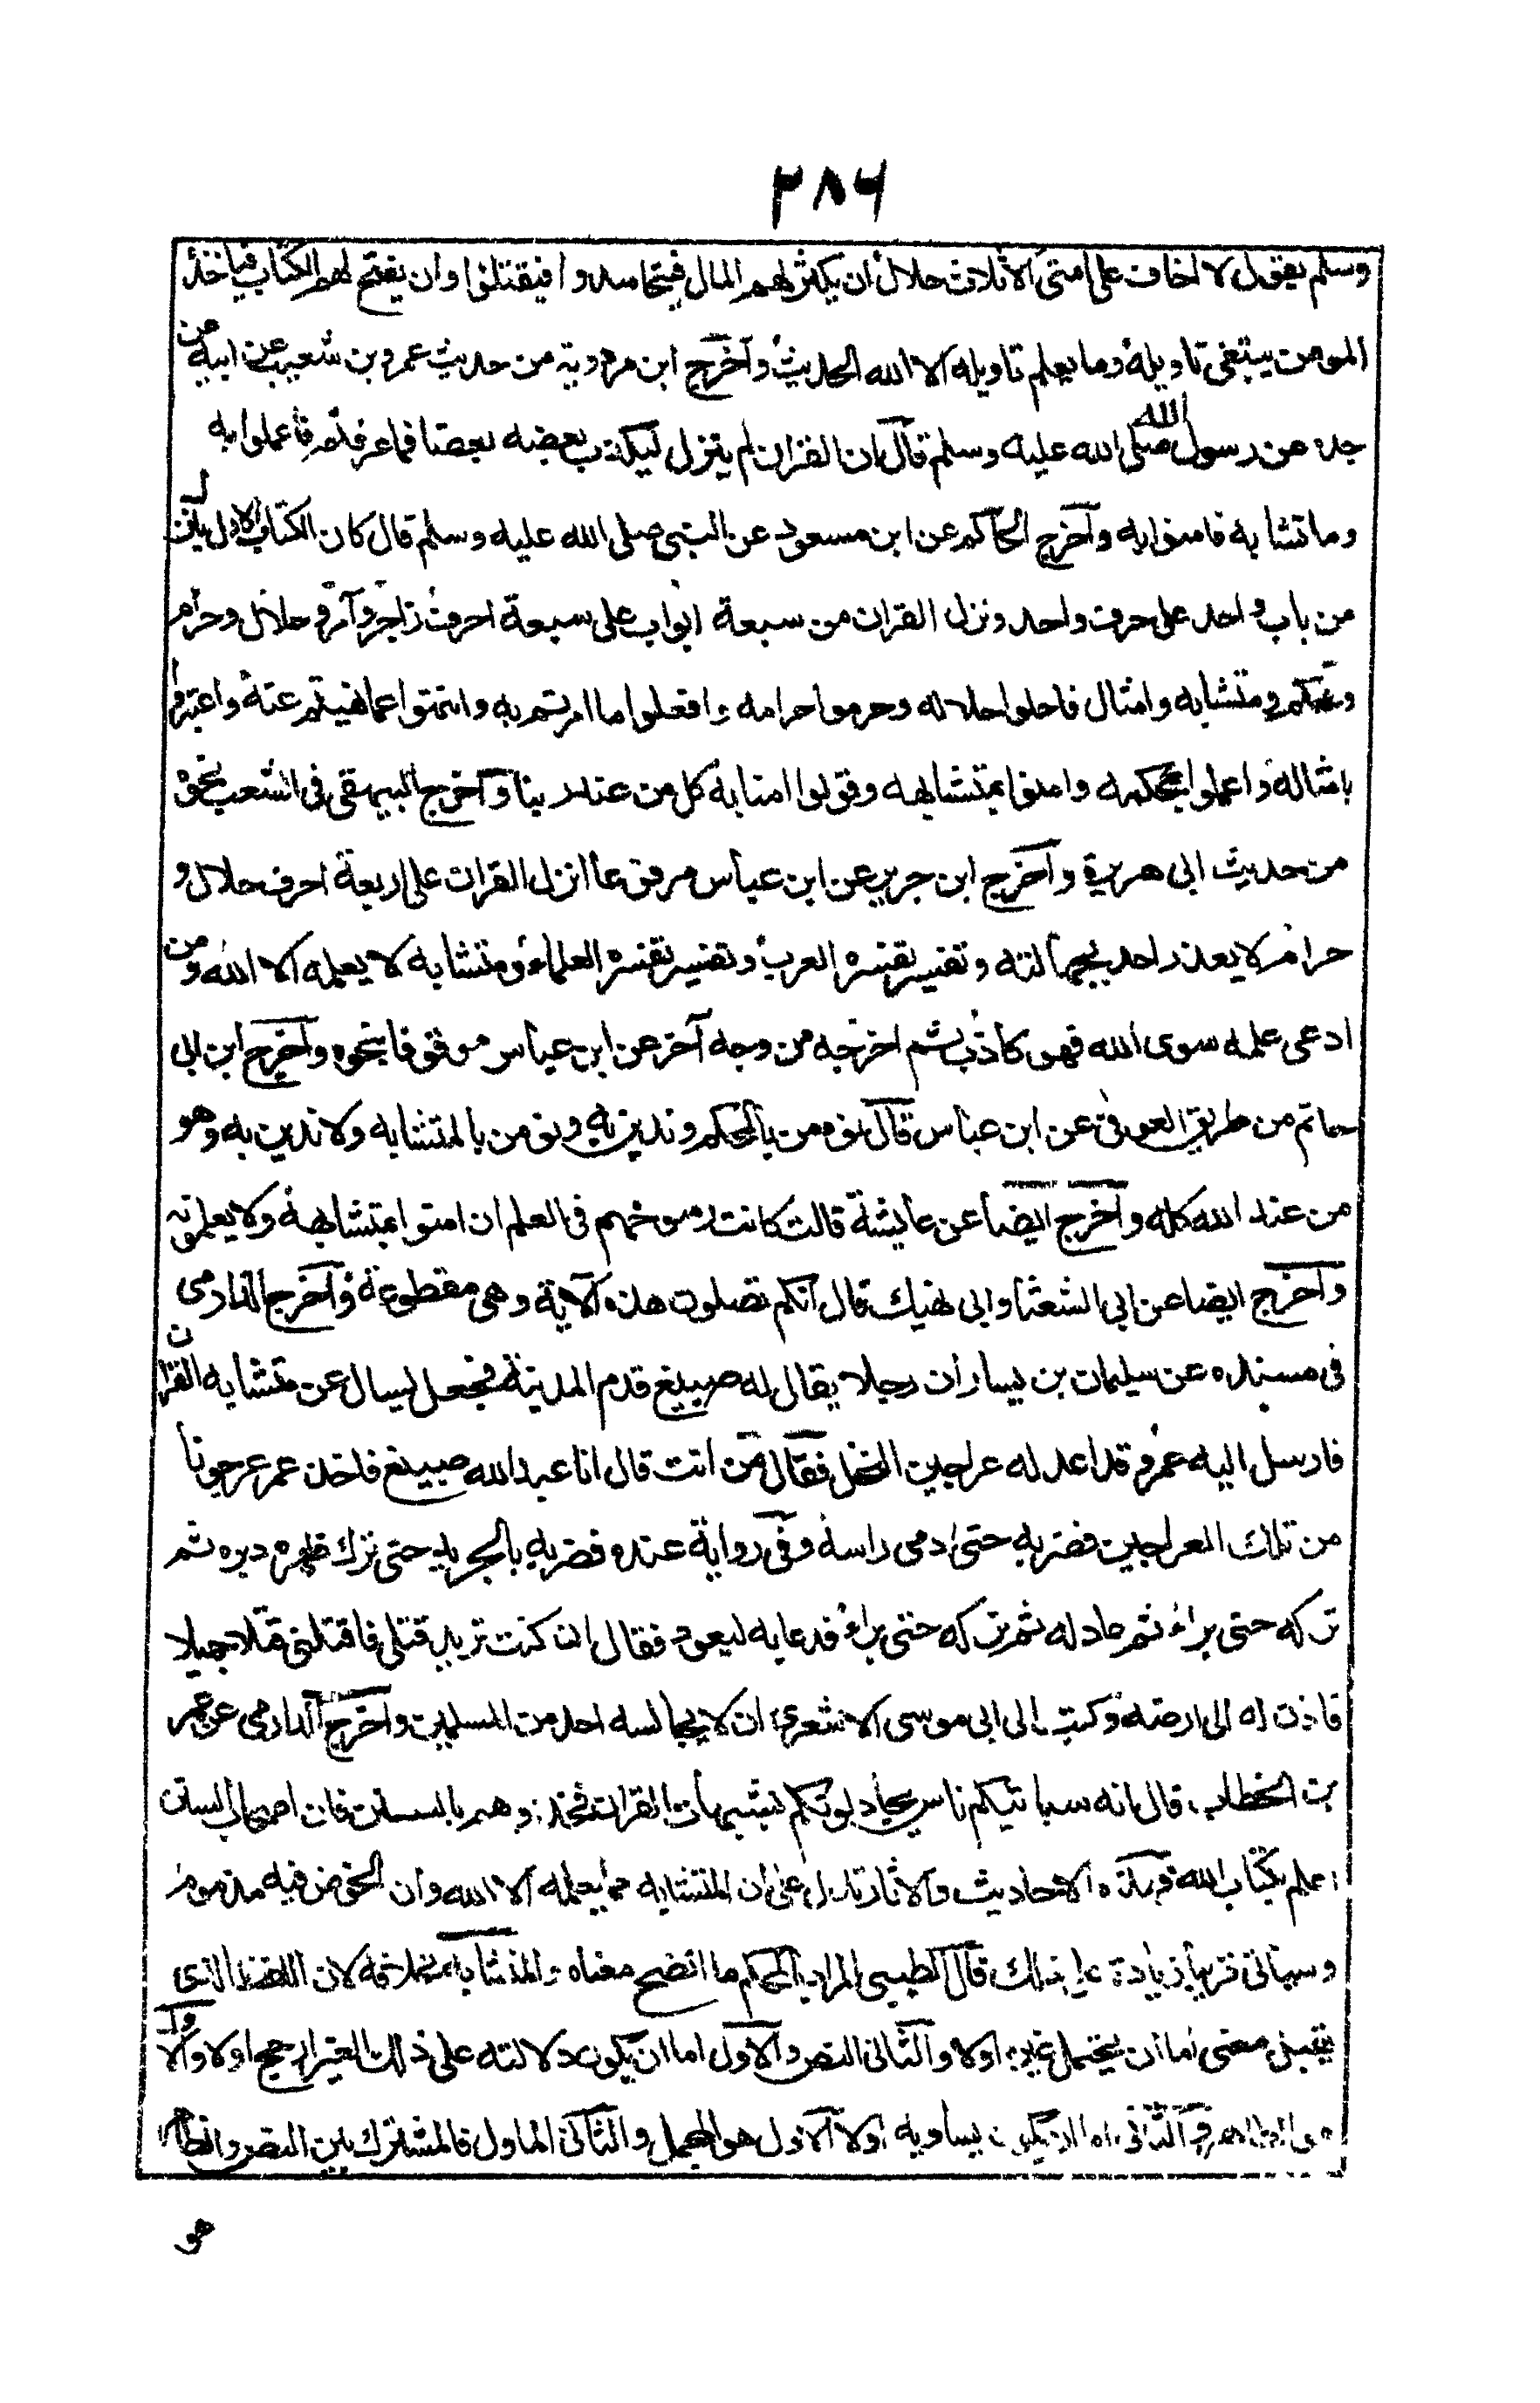 ٢٨٦
وسلم يقول لا اخاف على امتى الا ثلاث حلال ان يكثر لهم المال فيتحاسدوا فيقتتلوا وان يفتح لهم الكتاب فياخذ
المومن يبتغى تاويله وما يعلم تاويله الا الله الحديث وآخرج ابن مردويه من حديث عمرو بن شعيب عن ابيه عن
جده عن رسول الله صلى الله عليه وسلم قال ان القران لم ينزل ليكذب بعضه بعضا فما عرفتم فاعملوا به
وما تشابه فامنوا به وآخرج الحاكم عن ابن مسعود عن النبى صلى الله عليه وسلم قال كان الكتاب الاول ينزل
من باب واحد على حرف واحد ونزل القران من سبعة ابواب على سبعة احرف زاجر وآمر وحلال وحرام
ومحكم ومتشابه وامثال فاحلوا حلاله وحرموا حرامه وافعلوا ما امرتم به وانتهوا عما نهيتم عنه واعتبروا
بامثاله واعملوا بمحكمه وامنوا بمتشابهه وقولوا امنا به كل من عند ربنا وآخرج البيهقى فى الشعب نحوه
من حديث ابى هريرة وآخرج ابن جرير عن ابن عباس مرفوعا انزل القران على اربعة احرف حلال و
حرام لا يعذر احد بجهالته وتفسير تفسره العرب وتفسير تفسره العلماء ومتشابه لا يعلمه الا الله ومن
ادعى علمه سوى الله فهو كاذب ثم اخرجه من وجه آخر عن ابن عباس موقوفا بنحوه وآخرج ابن ابى
حاتم من طريق العوفى عن ابن عباس قال نومن بالمحكم وندين به ونومن بالمتشابه ولا ندين به وهو
من عند الله كله وآخرج ايضا عن عايشة قالت كانت رسوخهم فى العلم ان امنوا بمتشابهه ولا يعلمونه
وآخرج ايضا عن ابى الشعثا وابى نهيك قال انكم تصلون هذه الآية وهى مقطوعة وآخرج الدارمى
فى مسنده عن سليمان بن يسار ان رجلا يقال له صبيغ قدم المدينة فجعل يسال عن متشابه القران
فارسل اليه عمر وقد اعد له عراجين النخل فقال من انت قال انا عبد الله صبيغ فاخذ عمر عرجونا
من تلك العراجين فضربه حتى ادمى راسه وفى رواية عنده فضربه بالجريد حتى ترك ظهره دبره ثم
تركه حتى براء ثم عاد له ثم تركه حتى براء فدعا به ليعود فقال ان كنت تريد قتلى فاقتلنى قتلا جميلا
فاذن له الى ارضه وكتب الى ابى موسى الاشعرى ان لا يجالسه احد من المسلمين وآخرج الدارمى عن عمر
بن الخطاب قال انه سياتيكم ناس يجادلونكم بشبهات القران فخذوهم بالسنن فان اصحاب السنن
اعلم بكتاب الله فهذه الاحاديث والاثار تدل على ان المتشابه مما يعلمه الا الله وان الخوض فيه مذموم
وسياتى قريبا زيادة على ذلك قال الطيبى المراد بالمحكم ما اتضح معناه والمتشابه بخلافه لان اللفظ الذى
يقبل معنى اما ان يحتمل غيره اولا والثانى النص والاول اما ان يكون دلالته على ذلك الغير ارجح اولا والاول
هو الظاهر والثانى اما ان يكون يساويه اولا الاول هو المجمل والثانى الماول فالمشترك بين النص والظاهر
هو